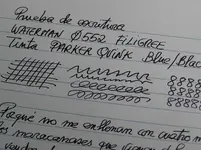 Prueba de escritura
WATERMAN 0552 FILIGREE
Tinta PARKER QUINK Blue/Blac
8888
8888
8888
Porqué no me enchonan con cuatro m
los maracaneses que